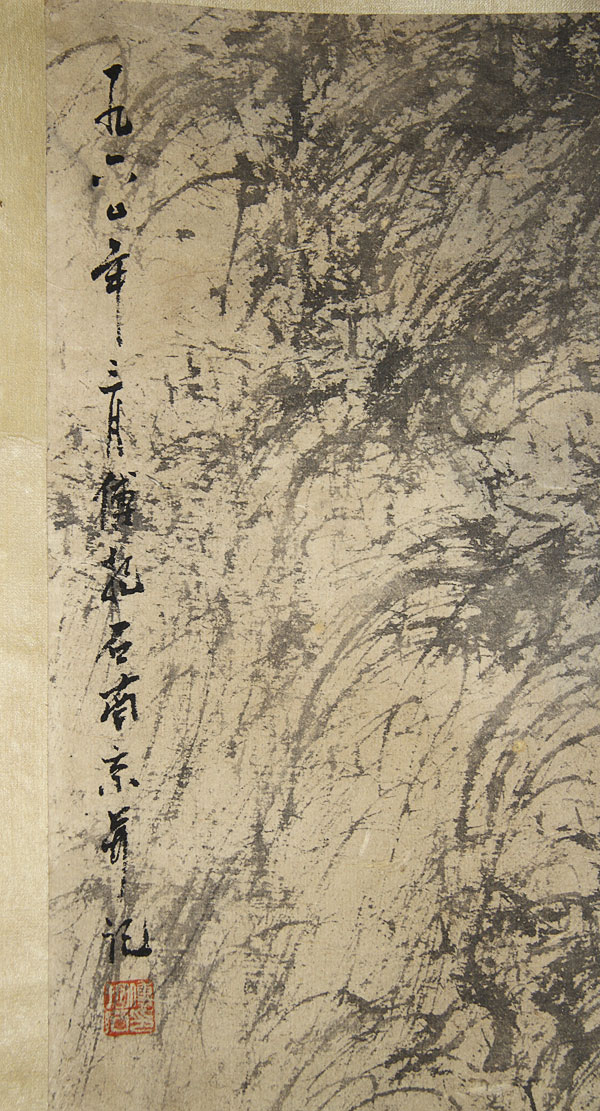 一九六〇年三月傅抱石南京并记